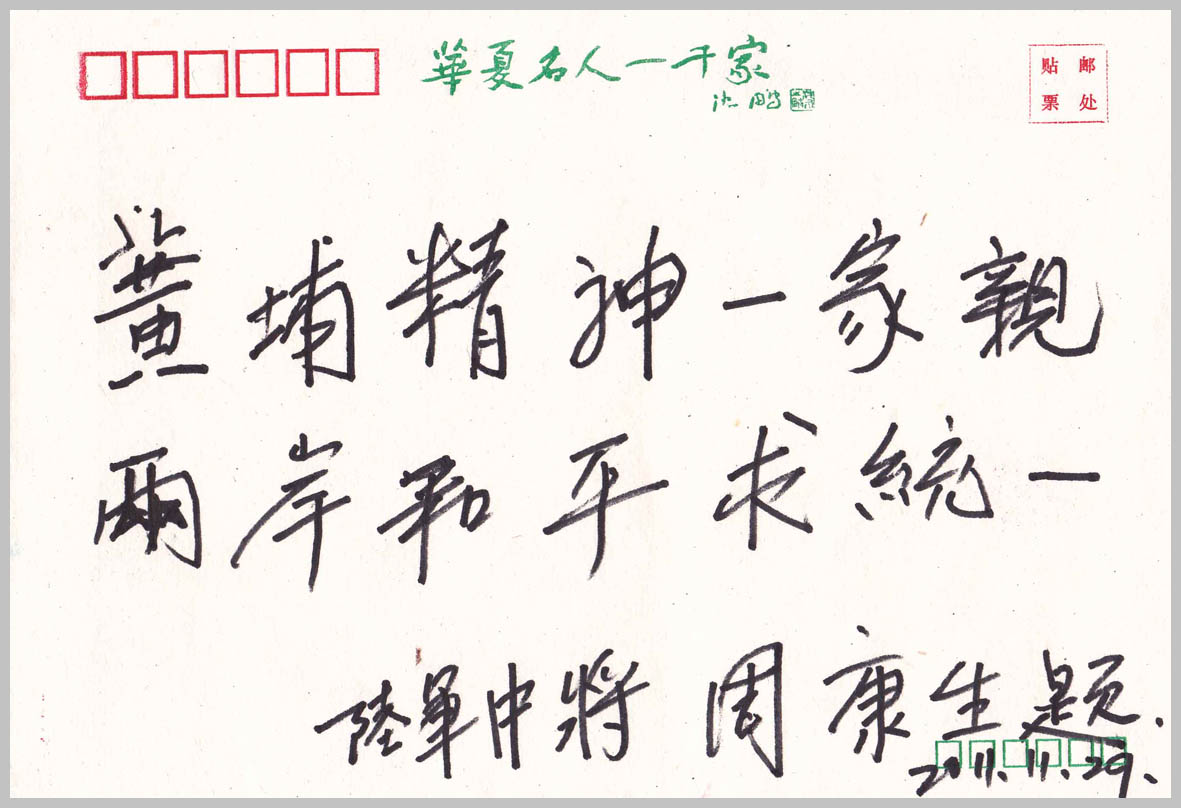 華夏名人一千家
沈鹏
贴邮
票处
黃埔精神一家親
兩岸和平求統一
陸軍中將 周康生題.
2011.11.29.